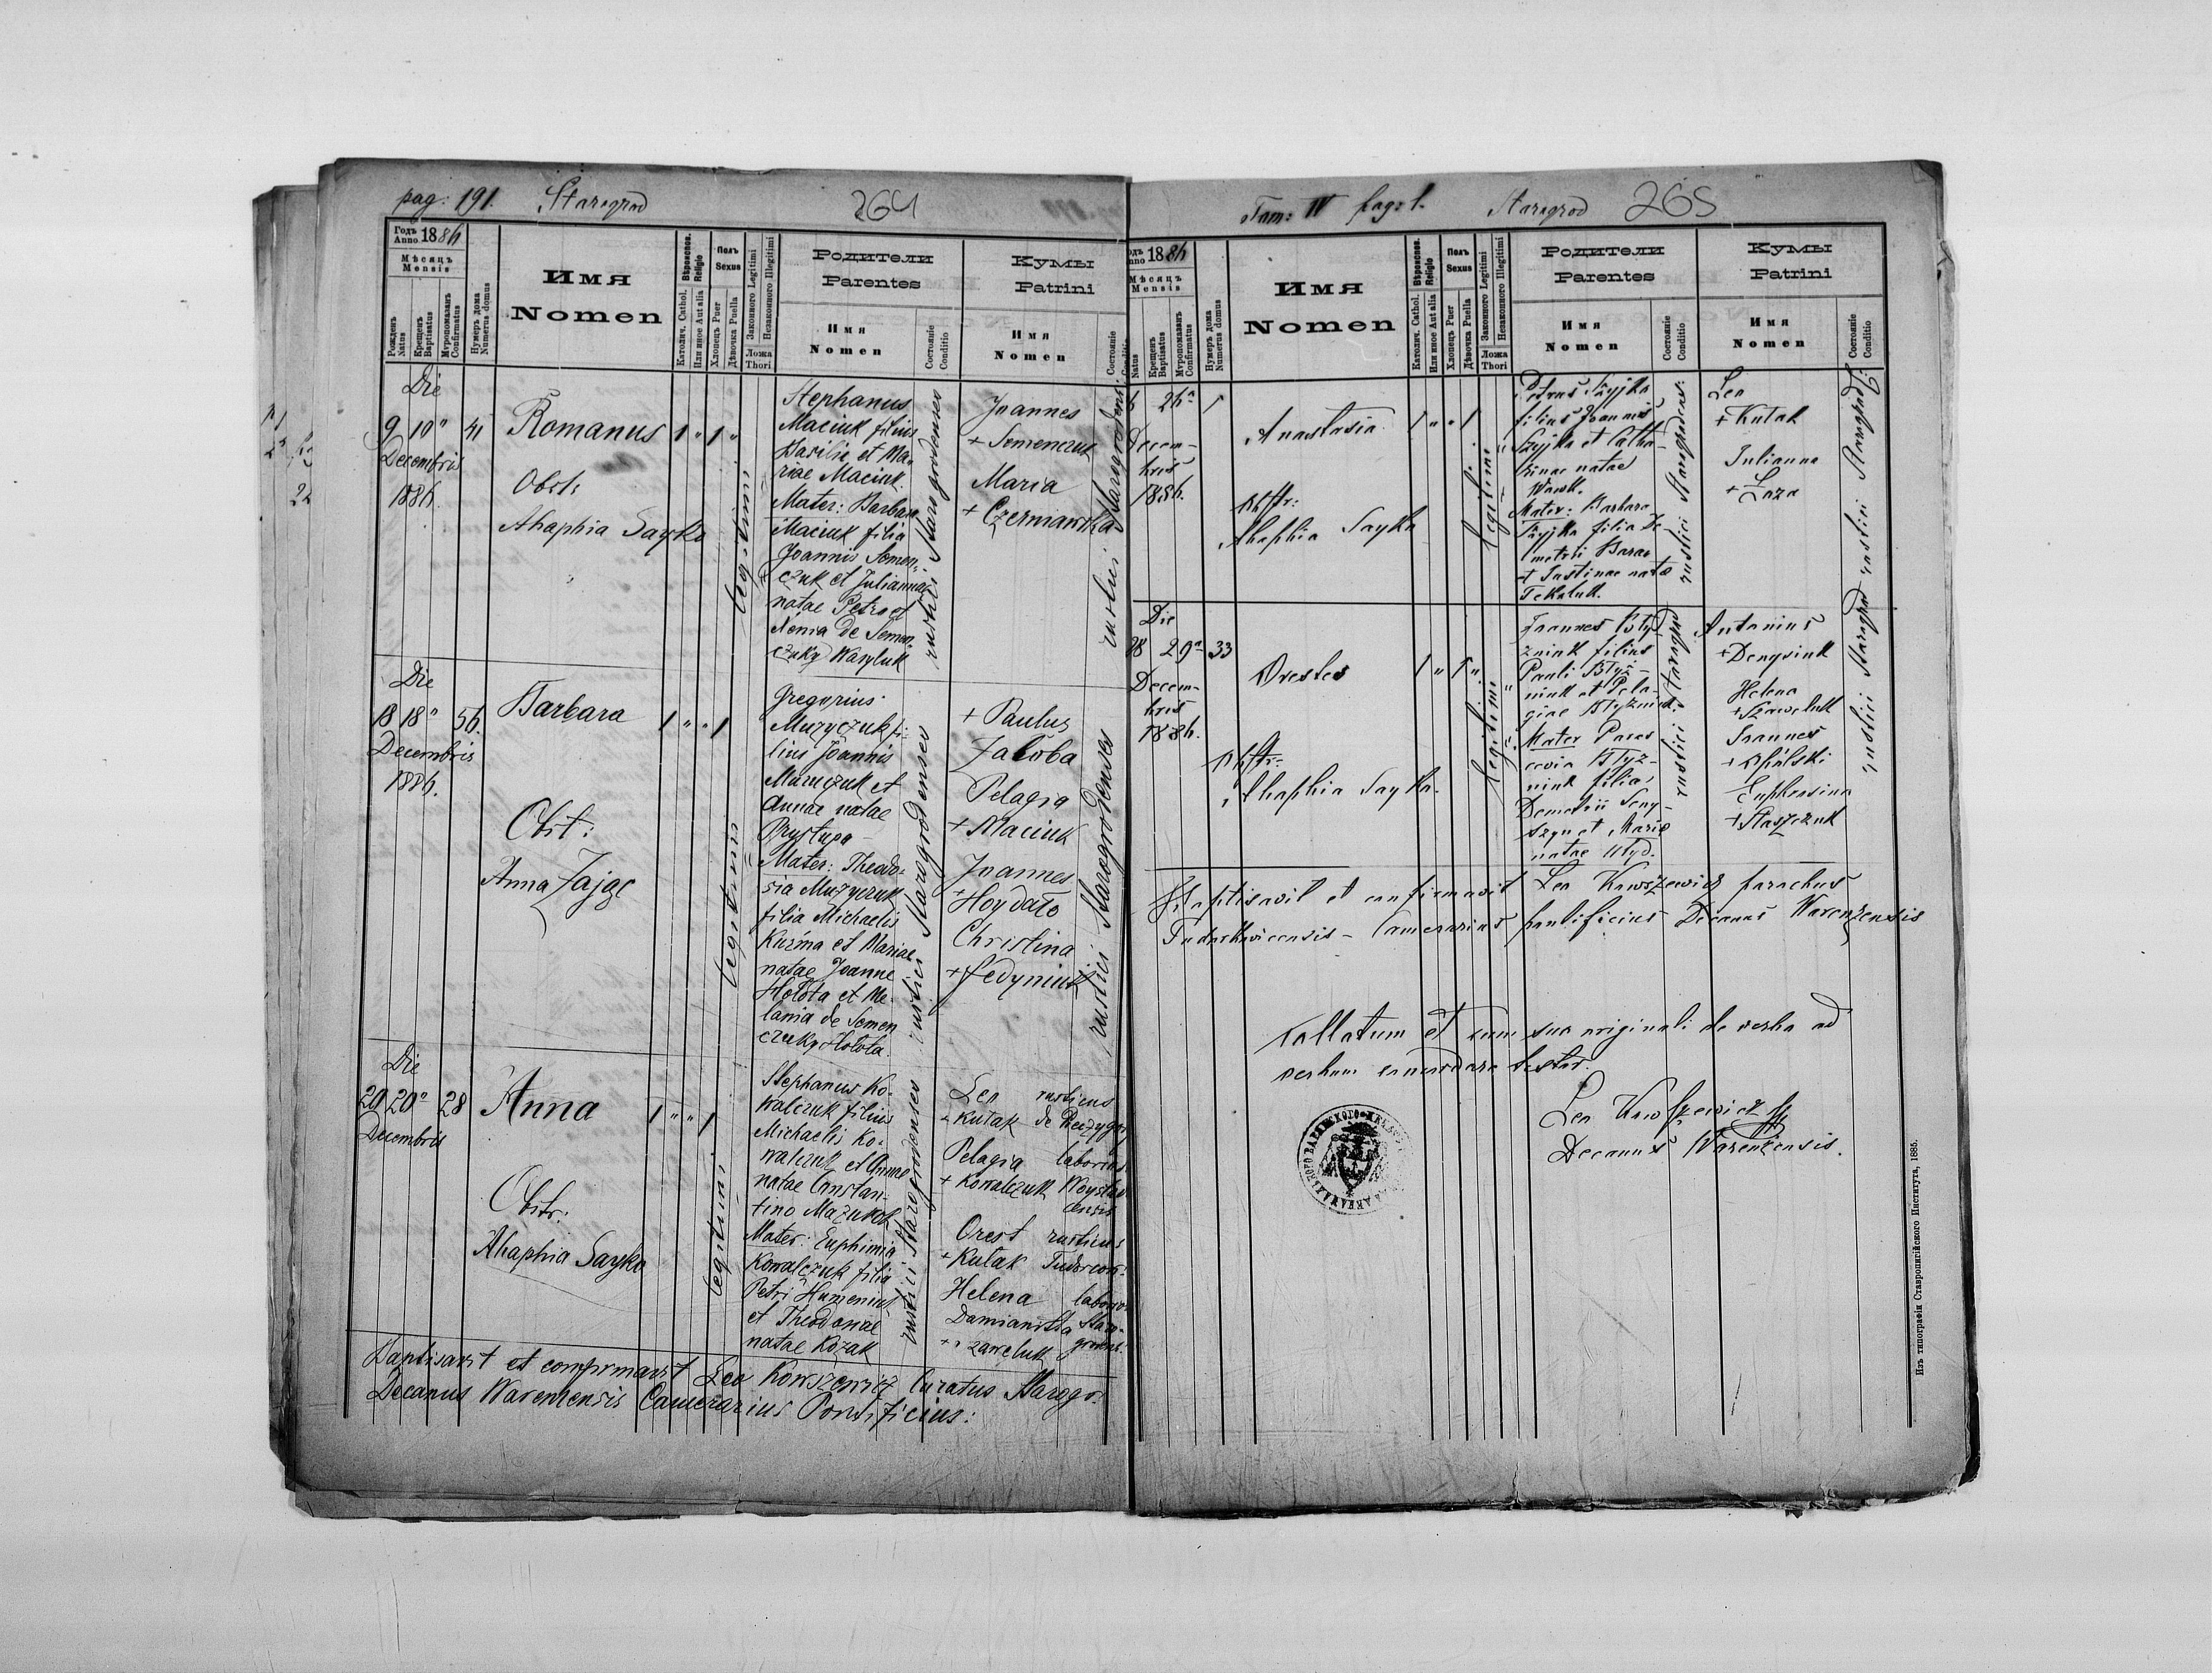 pag: 191. Starogrod 264
Годъ Anno 1886
Мѣсяцъ Mensis
Рожденъ Natus
Крещенъ Baptisatus
Мѵропомазанъ Confirmatus
Нумеръ дома Numerus domus
Имя
Nomen
Вѣроисповѣд. Religio
Католич. Cathol.
Или иное Aut alia
Полъ Sexus
Хлопець Puer
Дѣвочка Puella
Законного Legitimi
Незаконного Illegitimi
Ложа Thori
Родители
Parentes
Имя
Nomen
Состояніе Conditio
Кумы
Patrini
Имя
Nomen
Состояніе Conditio
Die
9 10" 41
Decembris
1886.
Romanus
Obstr
Ahaphia Sayko
1 " 1 "
legitimi
Stephanus
Maciuk filius
Basilii et Ma-
riae Maciuk.
Mater: Barbara
Maciuk filia
Joannis Semen-
czuk et Julianna
natae Petro et
Xenia de Semen-
czuky Wasyluk
rustici Starogrodenses
Joannes
+ Semenczuk
Maria
+ Czerniawska
rustici Starogrodens:
Die
18 18" 56.
Decembris
1886.
Barbara
Obst:
Anna Zając
1 " " 1
legitimi
Gregorius
Muzyczuk fi-
lius Joannis
Muzyczuk et
Annae natae
Prystupa
Mater: Theodo-
sia Muzyczuk
filia Michaelis
Kuzma et Mariae
natae Joanne
Hołota et Me-
lania de Semen
czuky Hołota.
rustici Starogrodenses
+ Paulus
Jaloba
Pelagia
+ Maciuk
Joannes
+ Hoydało
Christina
+ Fedyniuk
rustici Starogrodenses
Die
20 20" 28
Decembris
Anna
Obstr:
Ahaphia Sayko
1 " " 1
legitimi
Stephanus Ko-
walczuk filius
Michaelis Ko-
walczuk et Annae
natae Constan-
tino Mazurok
Mater: Euphimia
Kowalczuk filia
Petri Humeniuk
et Theodosiae
natae Kozak
rustici Starogrodenses
Leo rusticus
+ Kutak de
Pelagia
+ Kowalczuk
Orest rusticus
+ Kutak Tudorcow:
Helena
Damianitka Staro-
+ " zaweluk grodens:
Baptisavit et confirmavit Leo Kowszewicz Curatus Starogr.
Decanus Warenzensis Camerarius Pontificius:
Tom: IV pag: 1. Starogrod 265
Anno 1886
Мѣсяцъ Mensis
Natus
Крещенъ Baptisatus
Мѵропомазанъ Confirmatus
Нумеръ дома Numerus domus
Имя
Nomen
Вѣроисповѣд. Religio
Католич. Cathol.
Или иное Aut alia
Полъ Sexus
Хлопець Puer
Дѣвочка Puella
Законного Legitimi
Незаконного Illegitimi
Ложа Thori
Родители
Parentes
Имя
Nomen
Состояніе Conditio
Кумы
Patrini
Имя
Nomen
Состояніе Conditio
26" 1
Decem-
bris
1886.
Anastasia
Obstr:
Ahaphia Sayko
1 " " 1
legitimi
Petrus Szyjka
filius Joannis
Szyjka et Catha-
rinae natae
Mater: Barbara
Szyjka filia De-
metrii Baran
et Justinae natae
rustici Starogrodens:
Leo
+ Kutak
Julianna
+ Łoza
rustici Starogrod:
Die
28 29" 33
Decem-
bris
1886.
Orestes
Obstr:
Ahaphia Sayko.
1 " 1 "
legitimi
Joannes Błyż-
zniuk filius
Pauli Błyż-
niuk et Pela-
giae Błyzniuk.
Mater Paras
cevia Błyz-
niuk filia
Demetrii Seny-
szyn et Mariae
natae
rustici Starogrod
Antonius
+ Denysiuk
Helena
+ Szaweluk
Joannes
+ Opulski
Euphrosina
+ Staszczuk
rustici Starogrod
Baptisavit et confirmavit Leo Kowszewicz parochus
Tudorkovicensis - Camerarius pontificius Decanus Warenzensis
Collatum et cum suo originali de verbo ad
verbum concordare testor.
Leo Kowszewicz
Decanus Warenzensis.
Изъ типографіи Ставропигійского Института, 1885.